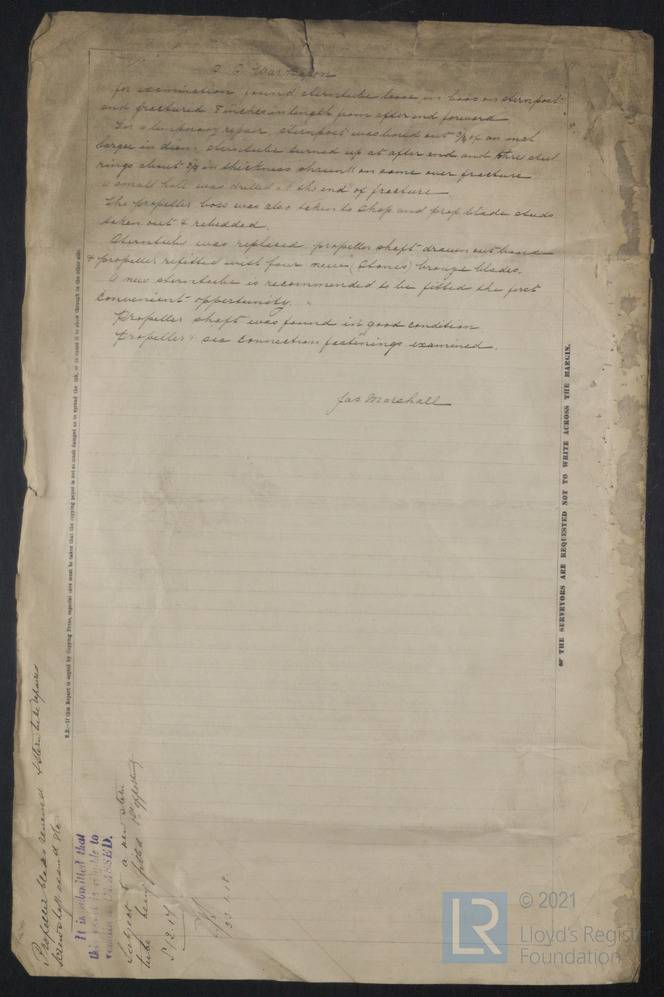 S. S. War
for examination, found sterntube loose in boss on sternpost
and fractured 8 inches in length from after end forward
For a temporary repair, sternpost was bored out 3/4 of an inch
larger in diam, sterntube turned up at after end and three steel
rings about 3/8 in thickness shrunk on same over fracture
a small hole was drilled at the end of fracture.
The propeller boss was also taken to shop and prop blade studs
taken out & rebedded.
Sterntube was replaced, propeller shaft drawn
& propeller refitted with four new (Stones) bronze blades.
A new sterntube is recommended to be fitted the first
convenient opportunity.
Propeller shaft was found in good condition
Propeller & sea connection fastenings examined.
Jas Marshall
☞ THE SURVEYORS ARE REQUESTED NOT TO WRITE ACROSS THE MARGIN.
N.B.—If this Report is copied by Copying Press, especial care must be taken that the copying paper is not so much damped as to spread the ink, or to cause it to show through to the other side.
Propeller blades renewed & Stern tube repaired
Screwshaft examd
It is submitted that
this vessel is eligible to
remain CLASSED.
Subject to a new stern
tube being fitted 1st opportunity
© 2021
LR
Lloyd's Register
Foundation